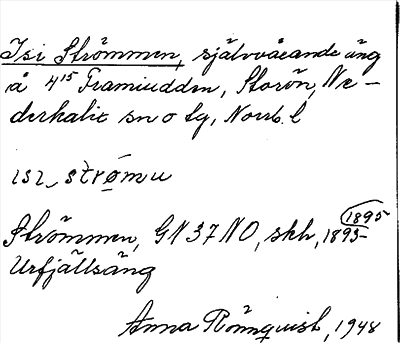 Isi Strömmen, självväxande äng
å 4¹⁵ Framiudden, Storön, Ne-
derkalix sn o tg, Norrb. l
ısı_strø̄mu
Strömmen, GN37NO, skh, 1895
1895
Urfjällsäng
Anna Rönnquist, 1948